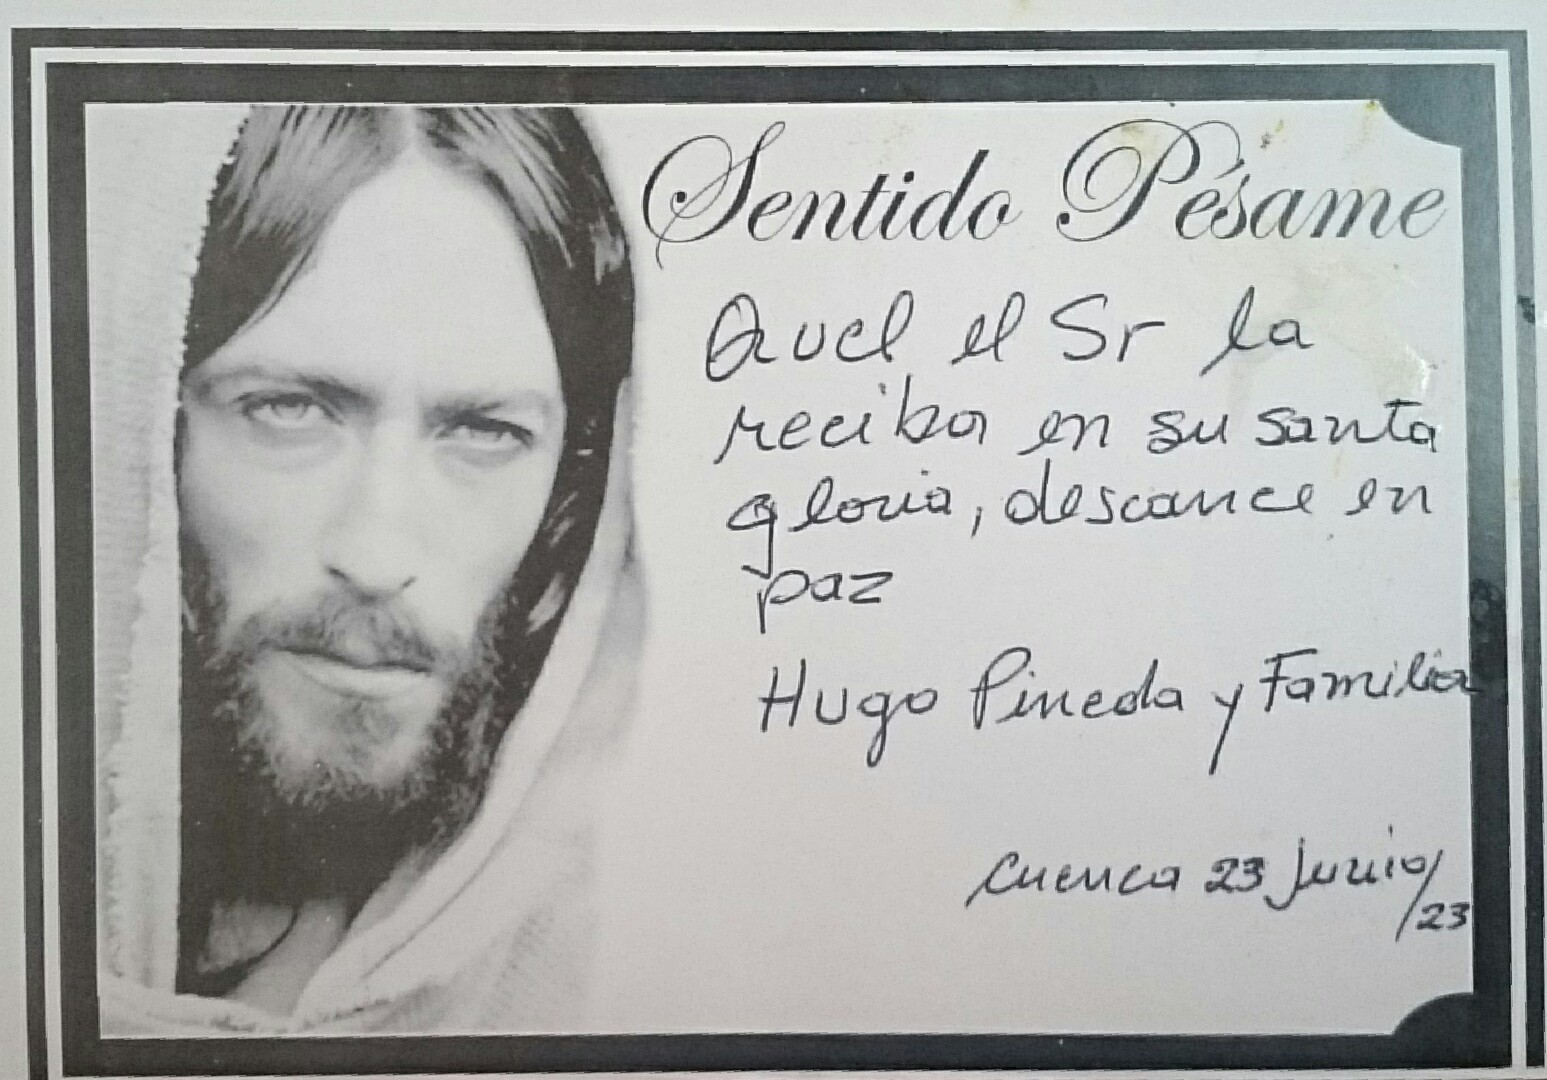 Sentido Pésame
Quel el Sr la
reciba en su santa
gloria, descance en
paz
Hugo Pineda y Familia
Cuenca 23 junio/
/23